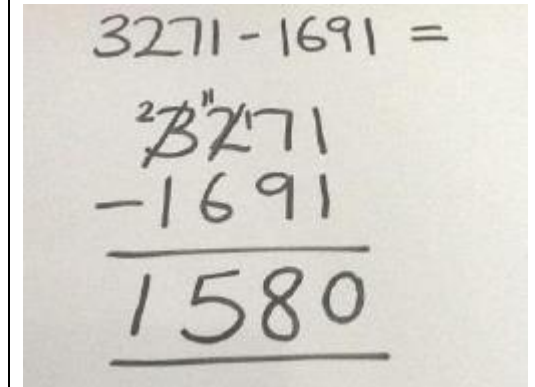 3271 - 1691 =
2 11 1
3271
-1691
1580